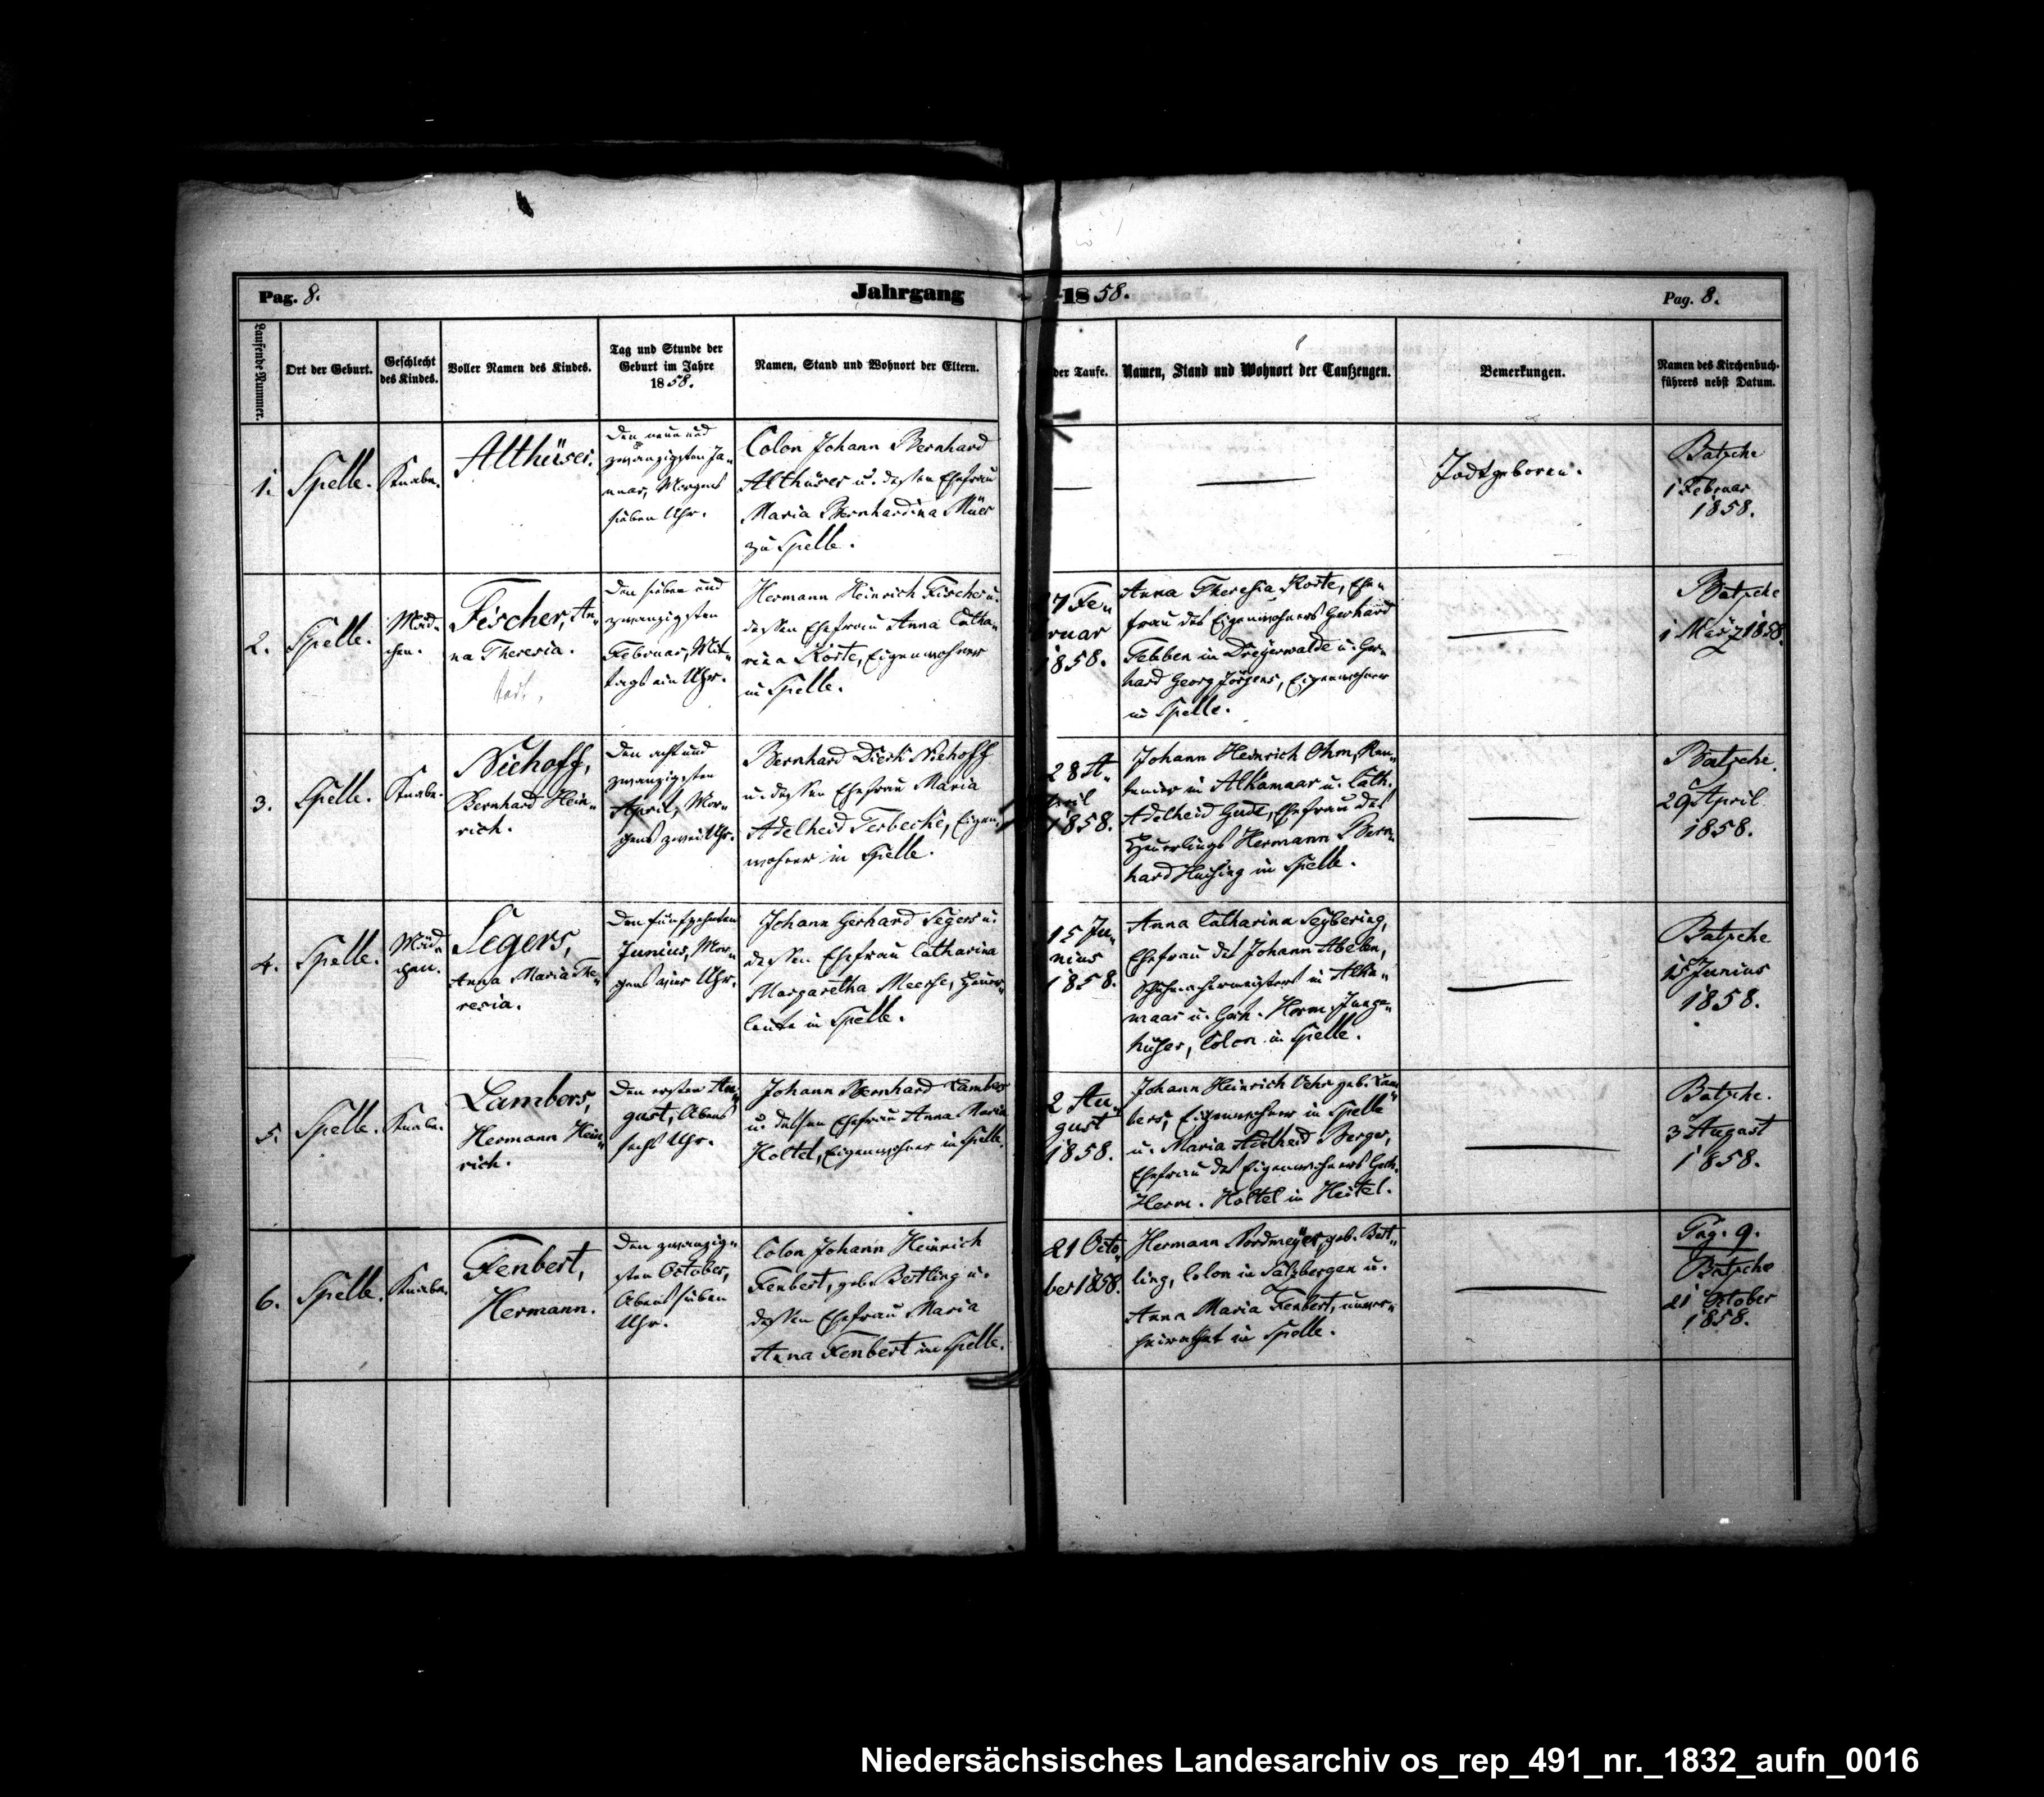 Pag. 8.
Jahrgang 1858.
Pag. 8.
Laufende Nummer.
Ort der Geburt.
Geschlecht
des Kindes.
Voller Namen des Kindes.
Tag und Stunde der
Geburt im Jahre
1858.
Namen, Stand und Wohnort der Eltern.
der Taufe.
Namen, Stand und Wohnort der Taufzeugen.
Bemerkungen.
Namen des Kirchenbuch-
führers nebst Datum.
1.
Spelle.
Knabe.
Althüser.
Den neun und
zwanzigsten Ja-
nuar, Morgens
sieben Uhr.
Colon Johann Bernhard
Althüser u. dessen Ehefrau
Maria Bernhardina Müer
zu Spelle.
Todtgeboren.
Batsche
1 Februar
1858.
2.
Spelle.
Mäd-
chen.
Fischer, An-
na Theresia.
Den sieben und
zwanzigsten
Februar, Mit-
tags ein Uhr.
Hermann Heinrich Fischer u.
dessen Ehefrau Anna Catha-
rina Körte, Eigenwohner
in Spelle.
7 Fe-
ruar
1858.
Anna Theresia Korte, Ehe-
frau des Eigenwohners Gerhard
Febben in Dreyerwalde u. Ger-
hard Georg Jörgens, Eigenwohner
in Spelle.
Batsche
1 März 1858.
3.
Spelle.
Knabe.
Niehoff,
Bernhard Hein-
rich.
Den acht und
zwanzigsten
April, Mor-
gens zwei Uhr.
Bernhard Dierk Niehoff
u. dessen Ehefrau Maria
Adelheid Terbecke, Eigen-
wohner in Spelle.
28 A-
pril
1858.
Johann Heinrich Ohm, Ren-
tenier in Alkamaar u. Cath.
Adelheid Gude, Ehefrau des
Heuerlings Hermann Bern-
hard Huising in Spelle.
Batsche.
29 April
1858.
4.
Spelle.
Mäd-
chen.
Segers,
Anna Maria The-
resia.
Den fünfzehnten
Junius, Mor-
gens vier Uhr.
Johann Gerhard Segers u.
dessen Ehefrau Catharina
Margaretha Meese, Heuer-
leute in Spelle.
15 Ju-
nius
1858.
Anna Catharina Seybering,
Ehefrau des Johann Abeln,
Schuhmachermeisters in Alka-
maar u. Gerh. Herm. Junge-
hüser, Colon in Spelle.
Batsche
15 Junius
1858.
5.
Spelle.
Knabe.
Lambers,
Hermann Hein-
rich.
Den ersten Au-
gust, Abends
sechs Uhr.
Johann Bernhard Lambers
u. dessen Ehefrau Anna Maria
Holtel, Eigenwohner in Spelle.
2 Au-
gust
1858.
Johann Heinrich Vehr geb. Lam-
bers, Eigenwohner in Spelle
u. Maria Adelheid Berger,
Ehefrau des Eigenwohners Gerh.
Herm. Holtel in Heitel.
Batsche.
3 August
1858.
6.
Spelle.
Knabe.
Fenbert,
Hermann.
Den zwanzig-
sten October,
Abends sieben
Uhr.
Colon Johann Heinrich
Fenbert, geb. Bertling u.
dessen Ehefrau Maria
Anna Fenbert in Spelle.
21 Octo-
ber 1858.
Hermann Nordmeyer, geb. Bert-
ling, Colon in Salzbergen u.
Anna Maria Fenbert, unver-
heirathet in Spelle.
Pag. 9.
Batsche
21 October
1858.
Niedersächsisches Landesarchiv os_rep_491_nr._1832_aufn_0016